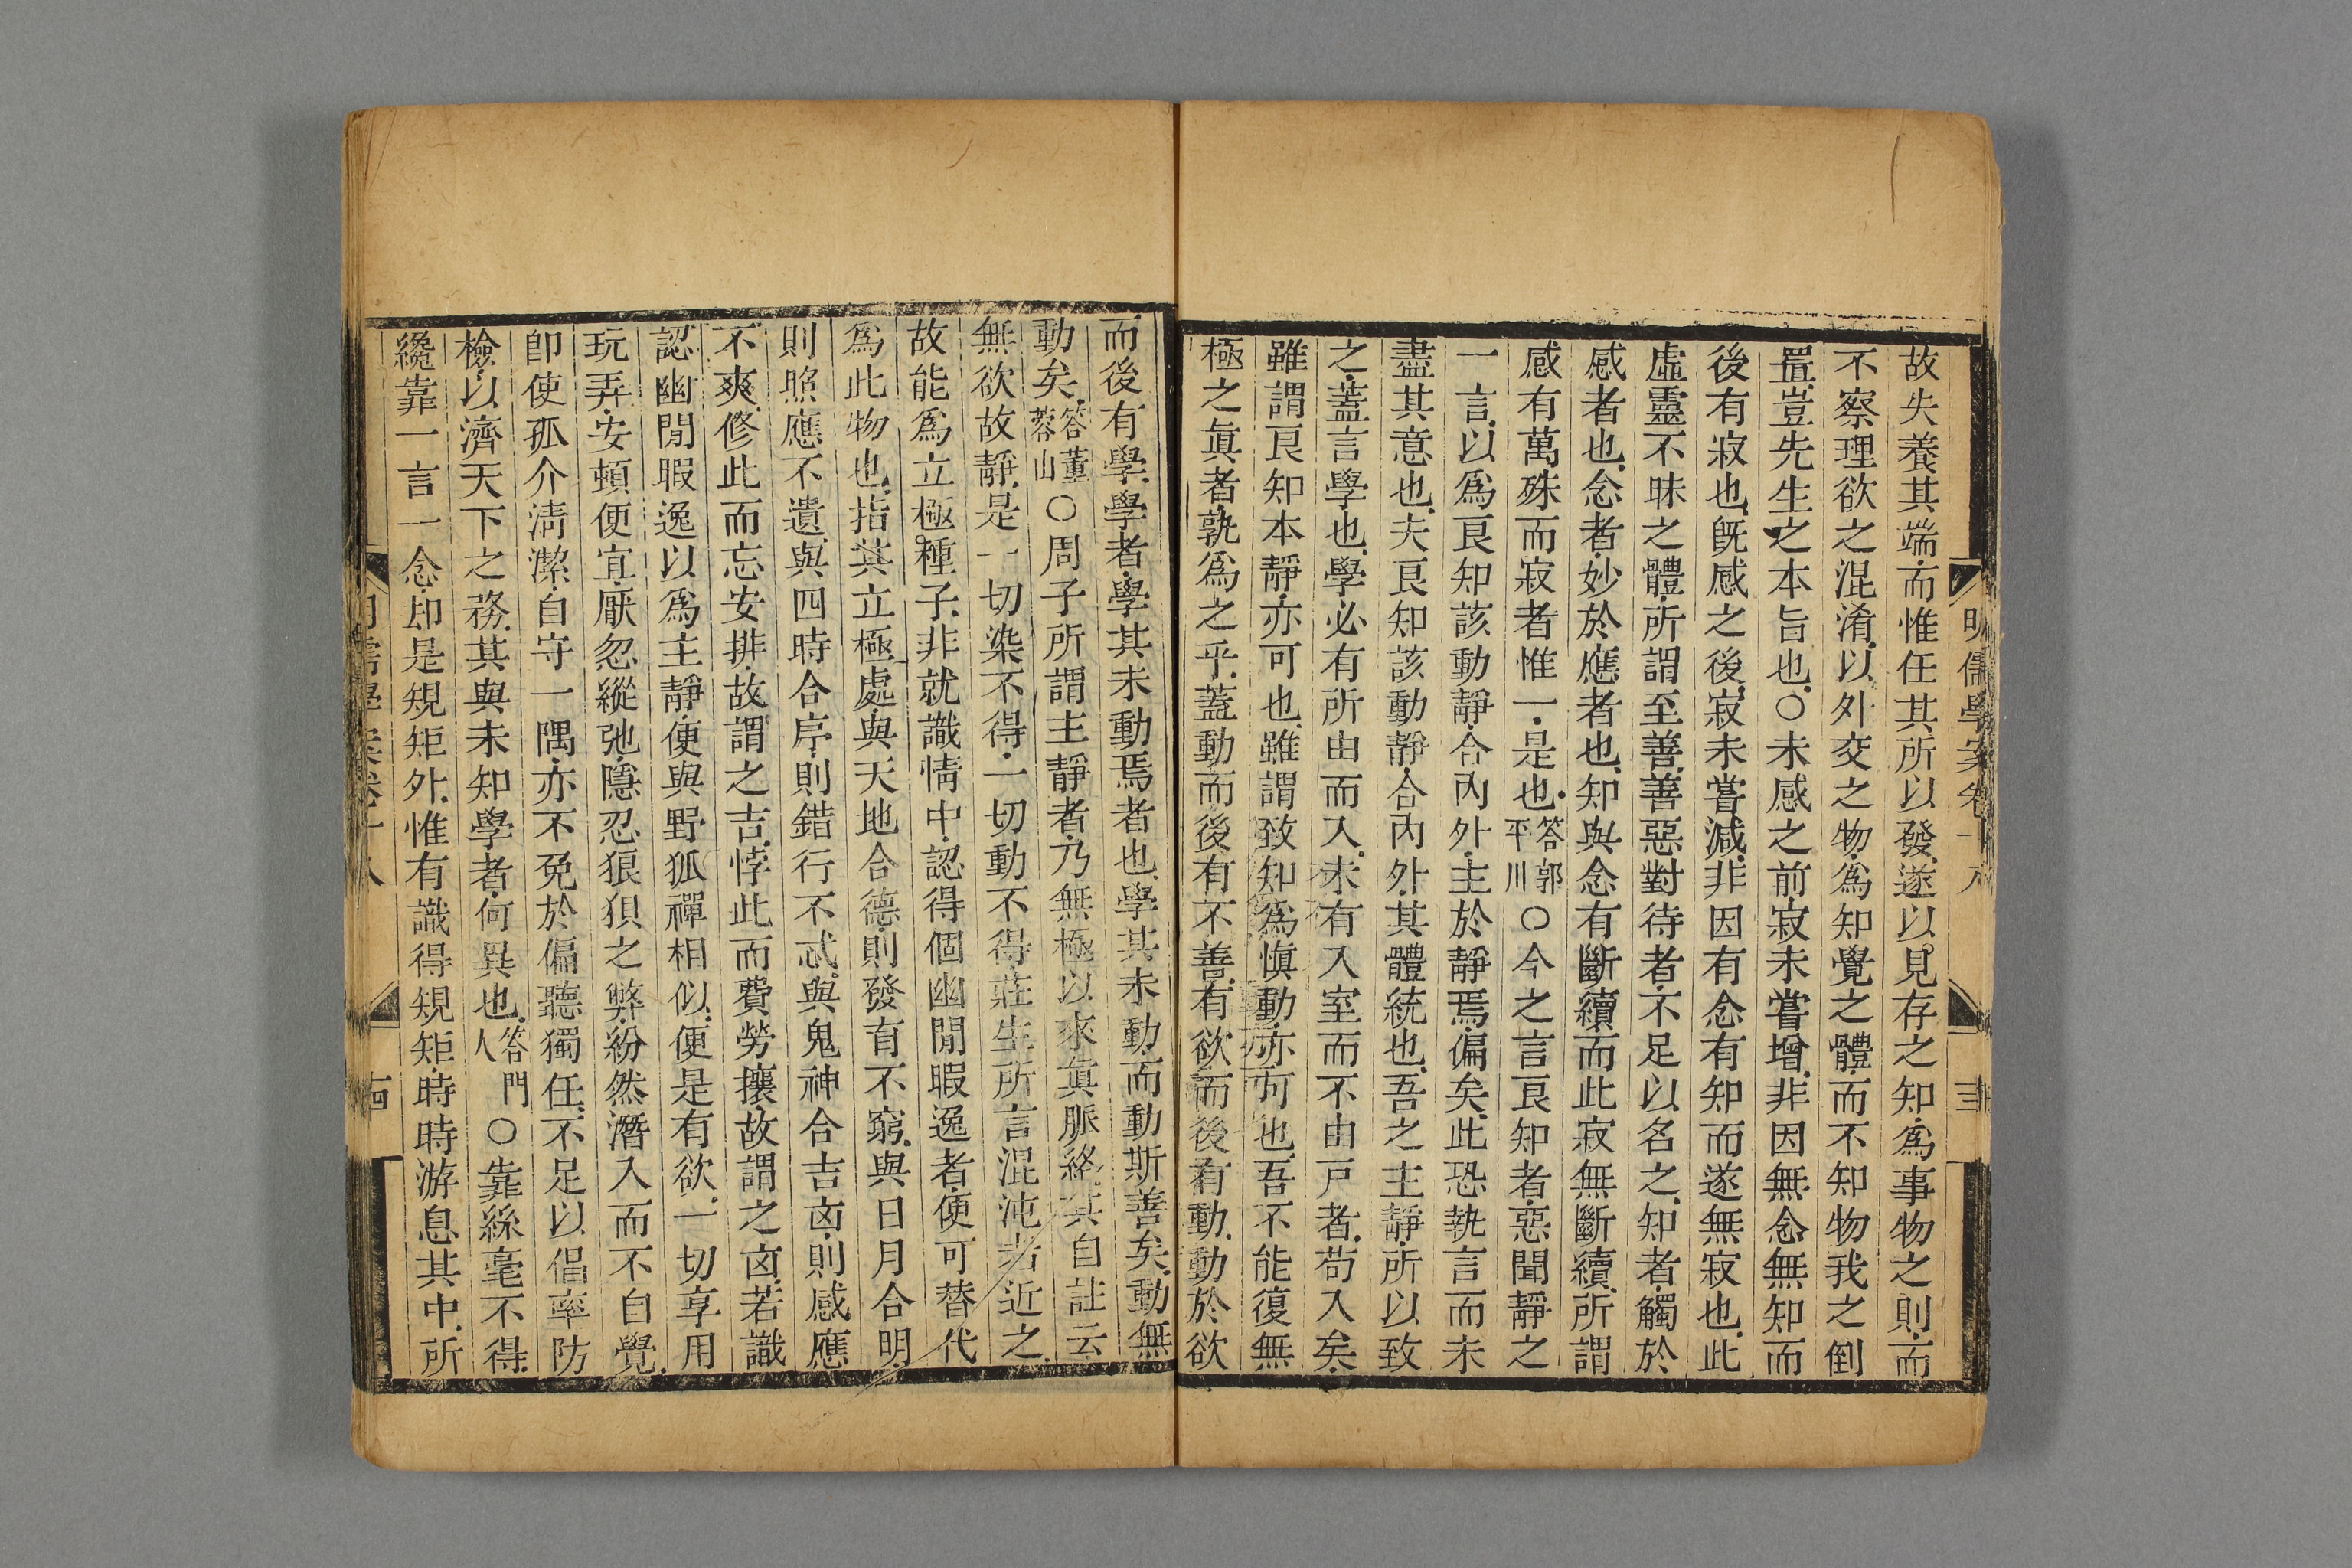 明儒學案卷十八
故失養其端而惟任其所以發遂以見存之知爲事物之則而
不察理欲之混淆以外交之物爲知覺之體而不知物我之倒
置豈先生之本旨也○未感之前寂未嘗增非因無念無知而
後有寂也旣感之後寂未嘗減非因有念有知而遂無寂也此
虛靈不昧之體所謂至善善惡對待者不足以名之知者觸於
感者也念者妙於應者也知與念有斷續而此寂無斷續所謂
感有萬殊而寂者惟一是也答郭平川○今之言良知者惡聞靜之
一言以爲良知該動靜合內外主於靜焉偏矣此恐執言而未
盡其意也夫良知該動靜合內外其體統也吾之主靜所以致
之蓋言學也學必有所由而入未有入室而不由戸者苟入矣
雖謂良知本靜亦可也雖謂致知爲愼動亦可也吾不能復無
極之眞者孰爲之乎蓋動而後有不善有欲而後有動動於欲
而後有學學者學其未動焉者也學其未動而動斯善矣動無
動矣答董蓉山○周子所謂主靜者乃無極以來眞脈絡其自註云
無欲故靜是一切染不得一切動不得莊生所言混沌者近之
故能爲立極種子非就識情中認得個幽閒暇逸者便可替代
爲此物也指其立極處與天地合德則發育不窮與日月合明
則照應不遺與四時合序則錯行不忒與鬼神合吉凶則感應
不爽修此而忘安排故謂之吉悖此而費勞攘故謂之凶若識
認幽閒暇逸以爲主靜便與野狐禪相似便是有欲一切享用
玩弄安頓便宜厭忽縱弛隱忍狼狽之弊紛然潛入而不自覺
卽使孤介淸潔自守一隅亦不免於偏聽獨任不足以倡率防
檢以濟天下之務其與未知學者何異也答門人○靠絲毫不得
纔靠一言一念卽是規矩外惟有識得規矩時時游息其中所